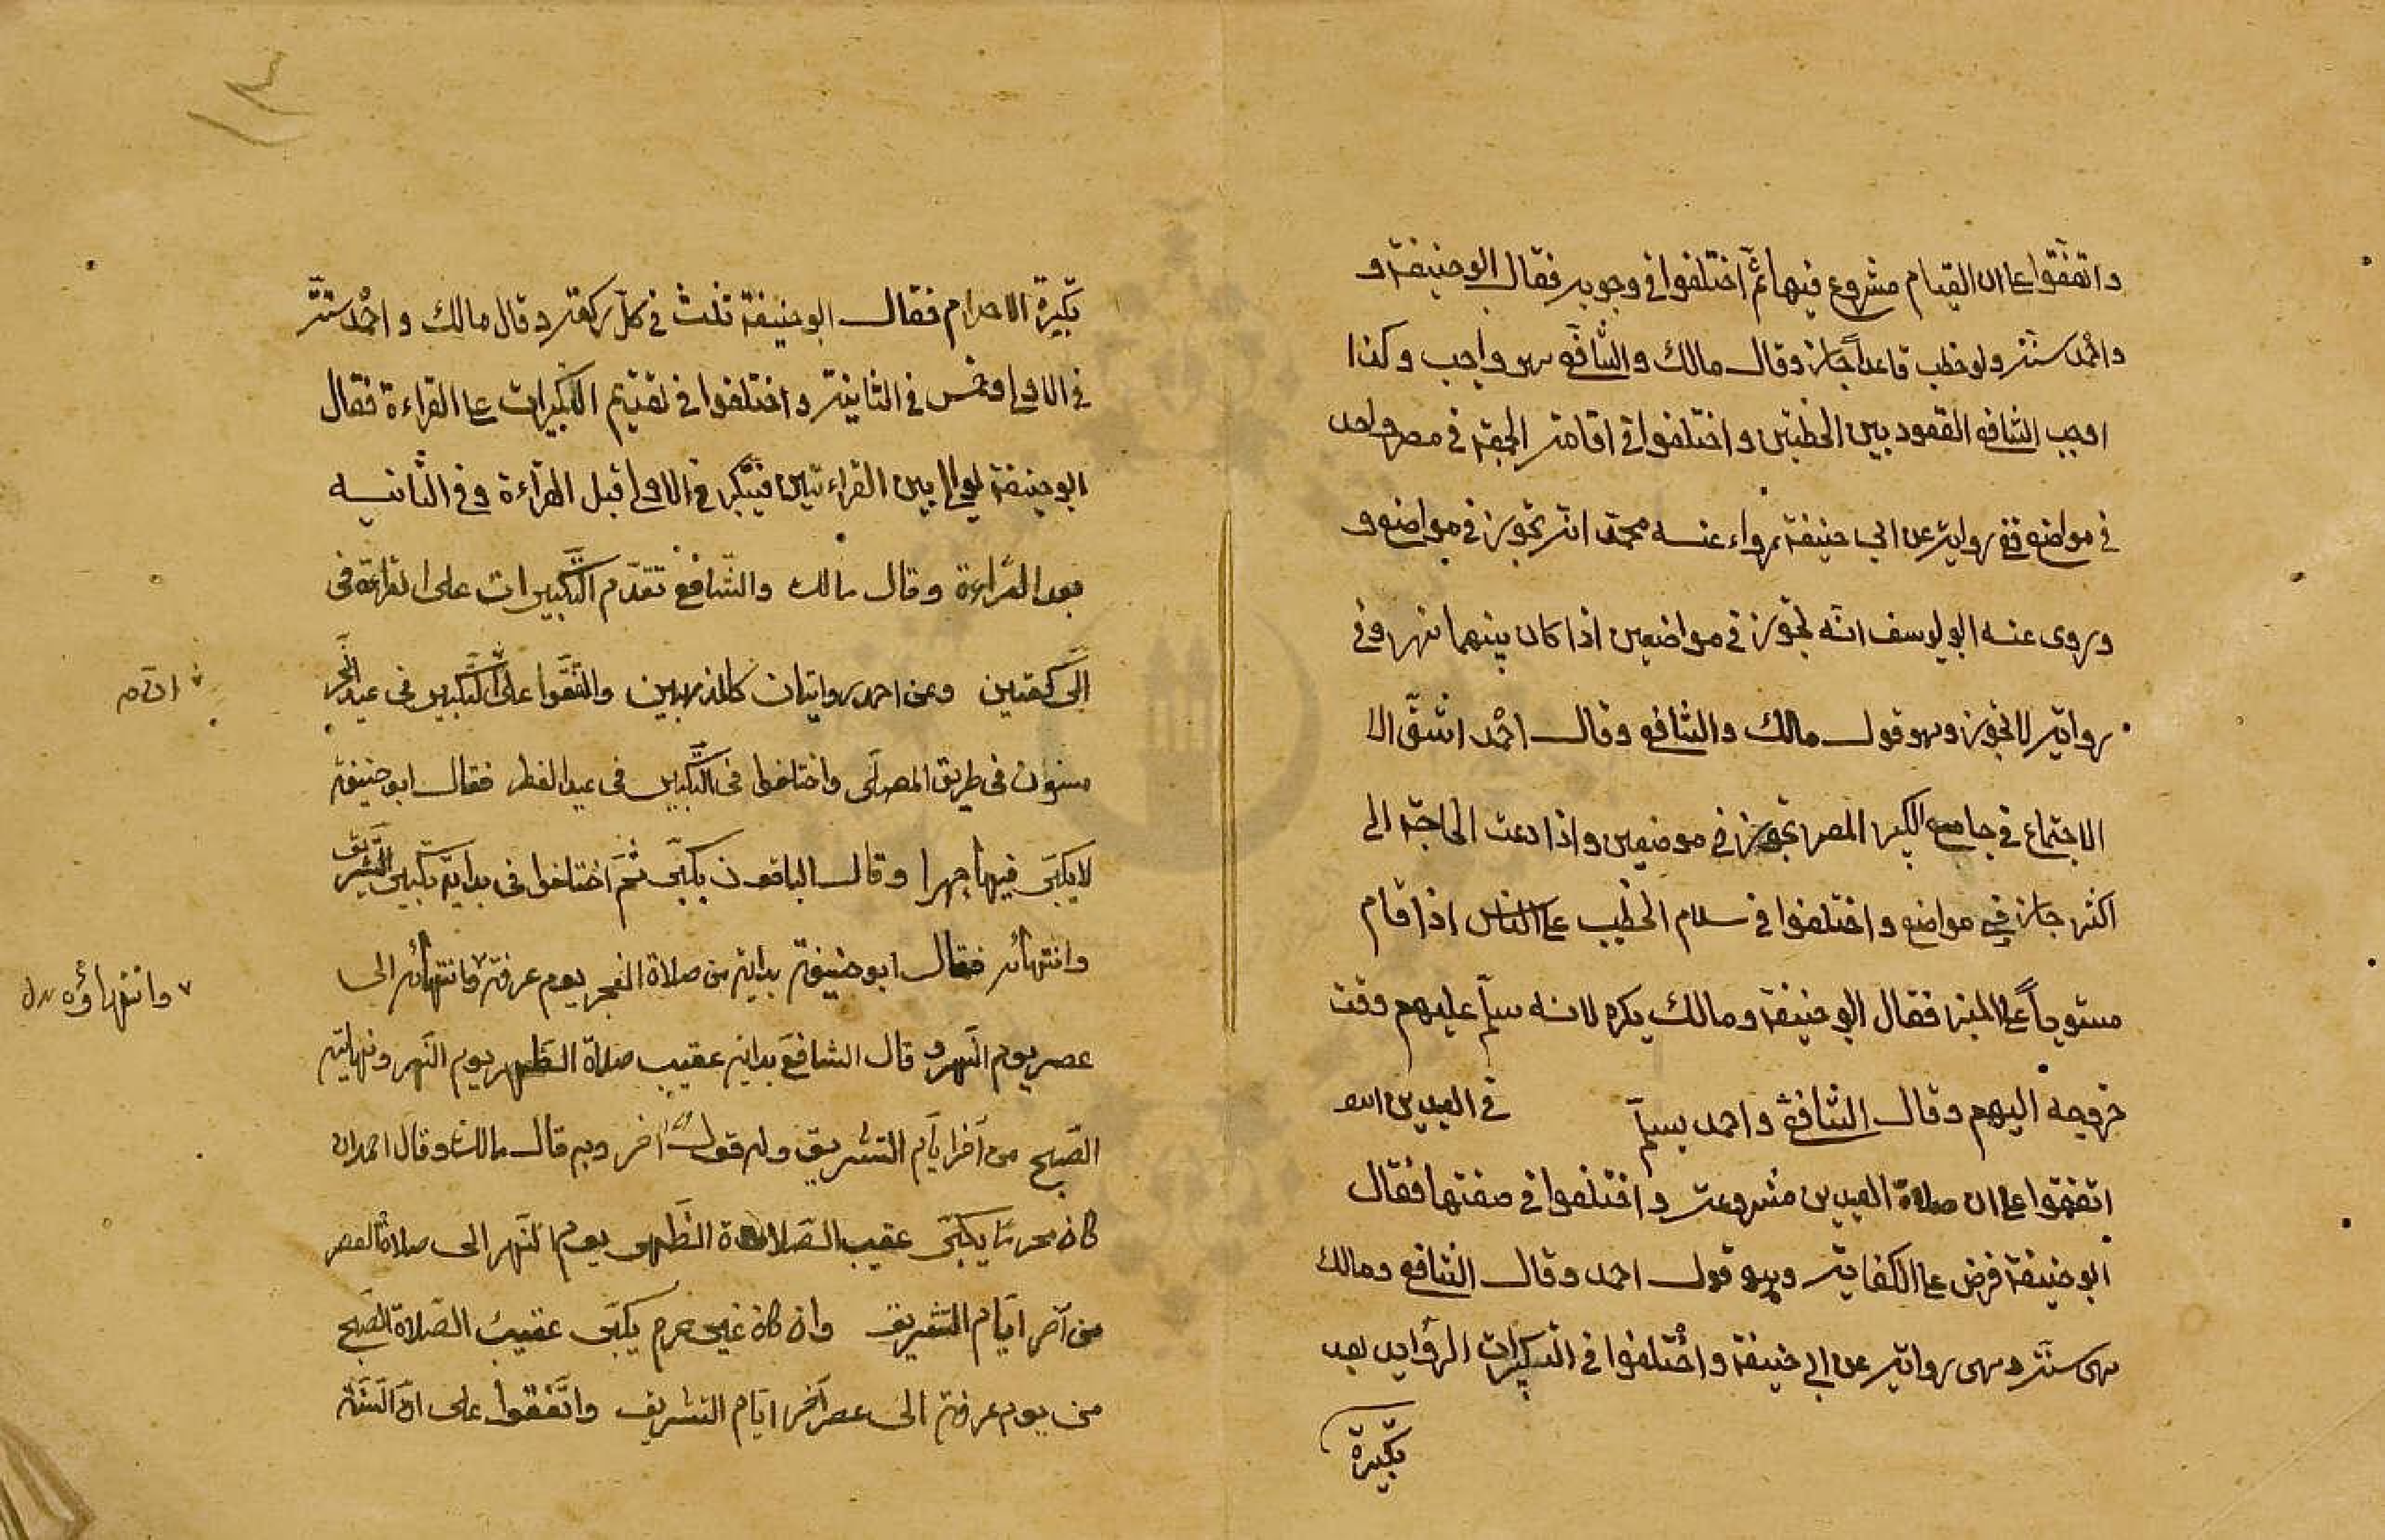 واتفقوا على ان القيام مشروع فيها ثم اختلفوا في وجوبه فقال ابو حنيفة و
واحمد سنة ولو خطب قاعداً جاز وقال مالك والشافع هو واجب وكذا
اوجب الشافع القعود بين الخطبتين واختلفوا في اقامة الجمعة في مصر واحد
في مواضع ففي رواية عن ابي حنيفة رواه عنه محمد انه يجوز في مواضع و
وروى عنه ابو يوسف انه يجوز في موضعين اذا كان بينهما نهر وفي
رواية لا يجوز وهو قول مالك والشافع وقال احمد اشق الا
الاجتماع في جامع الكبر المصر يجوز في موضعين واذا دعت الحاجة الى
اكثر جاز في مواضع واختلفوا في سلام الخطيب على الناس اذا قام
مستوياً على المنبر فقال ابو حنيفة ومالك يكره لانه سلم عليهم وقت
خروجه اليهم وقال الشافع واحمد يسلم في العيدين
اتفقوا على ان صلاة العيدين مشروعة واختلفوا في صفتها فقال
ابو حنيفة فرض على الكفاية وهو قول احمد وقال الشافع ومالك
هي سنة وهي رواية عن ابي حنيفة واختلفوا في التكبيرات الزوايد بعد
تكبيرة
تكبيرة الاحرام فقال ابو حنيفة ثلث في كل ركعة وقال مالك واحمد ستة
في الاولى وخمس في الثانية واختلفوا في تقديم التكبيرات على القراءة فقال
ابو حنيفة يوالي بين القراءتين فيكبر في الاولى قبل القراءة وفي الثانيه
بعد القراءة وقال مالك والشافع تقدم التكبيرات على القراءة في
الركعتين وعن احمد روايتان كالمذهبين واتفقوا على التكبير في عيد النحر
مسنون في طريق المصلى واختلفوا في التكبير في عيد الفطر فقال ابو حنيفة
لا يكبر فيها جهرا وقال الباقون يكبر ثم اختلفوا في بداية تكبير التشريق
وانتهائه فقال ابو حنيفة بداية من صلاة الفجر يوم عرفة وانتهائه الى
وانتهاؤه
عصر يوم النحر وقال الشافع بداية عقيب صلاة الظهر يوم النحر ونهايته
الصبح من آخر ايام التشريق وله قول آخر وبه قال مالك وقال احمد ان
كان محرما يكبر عقيب الصلاة الظهر يوم النحر الى صلاة العصر
من آخر ايام التشريق وان كان غير محرم يكبر عقيب الصلاة الصبح
من يوم عرفة الى عصر آخر ايام التشريق واتفقوا على ان السنة